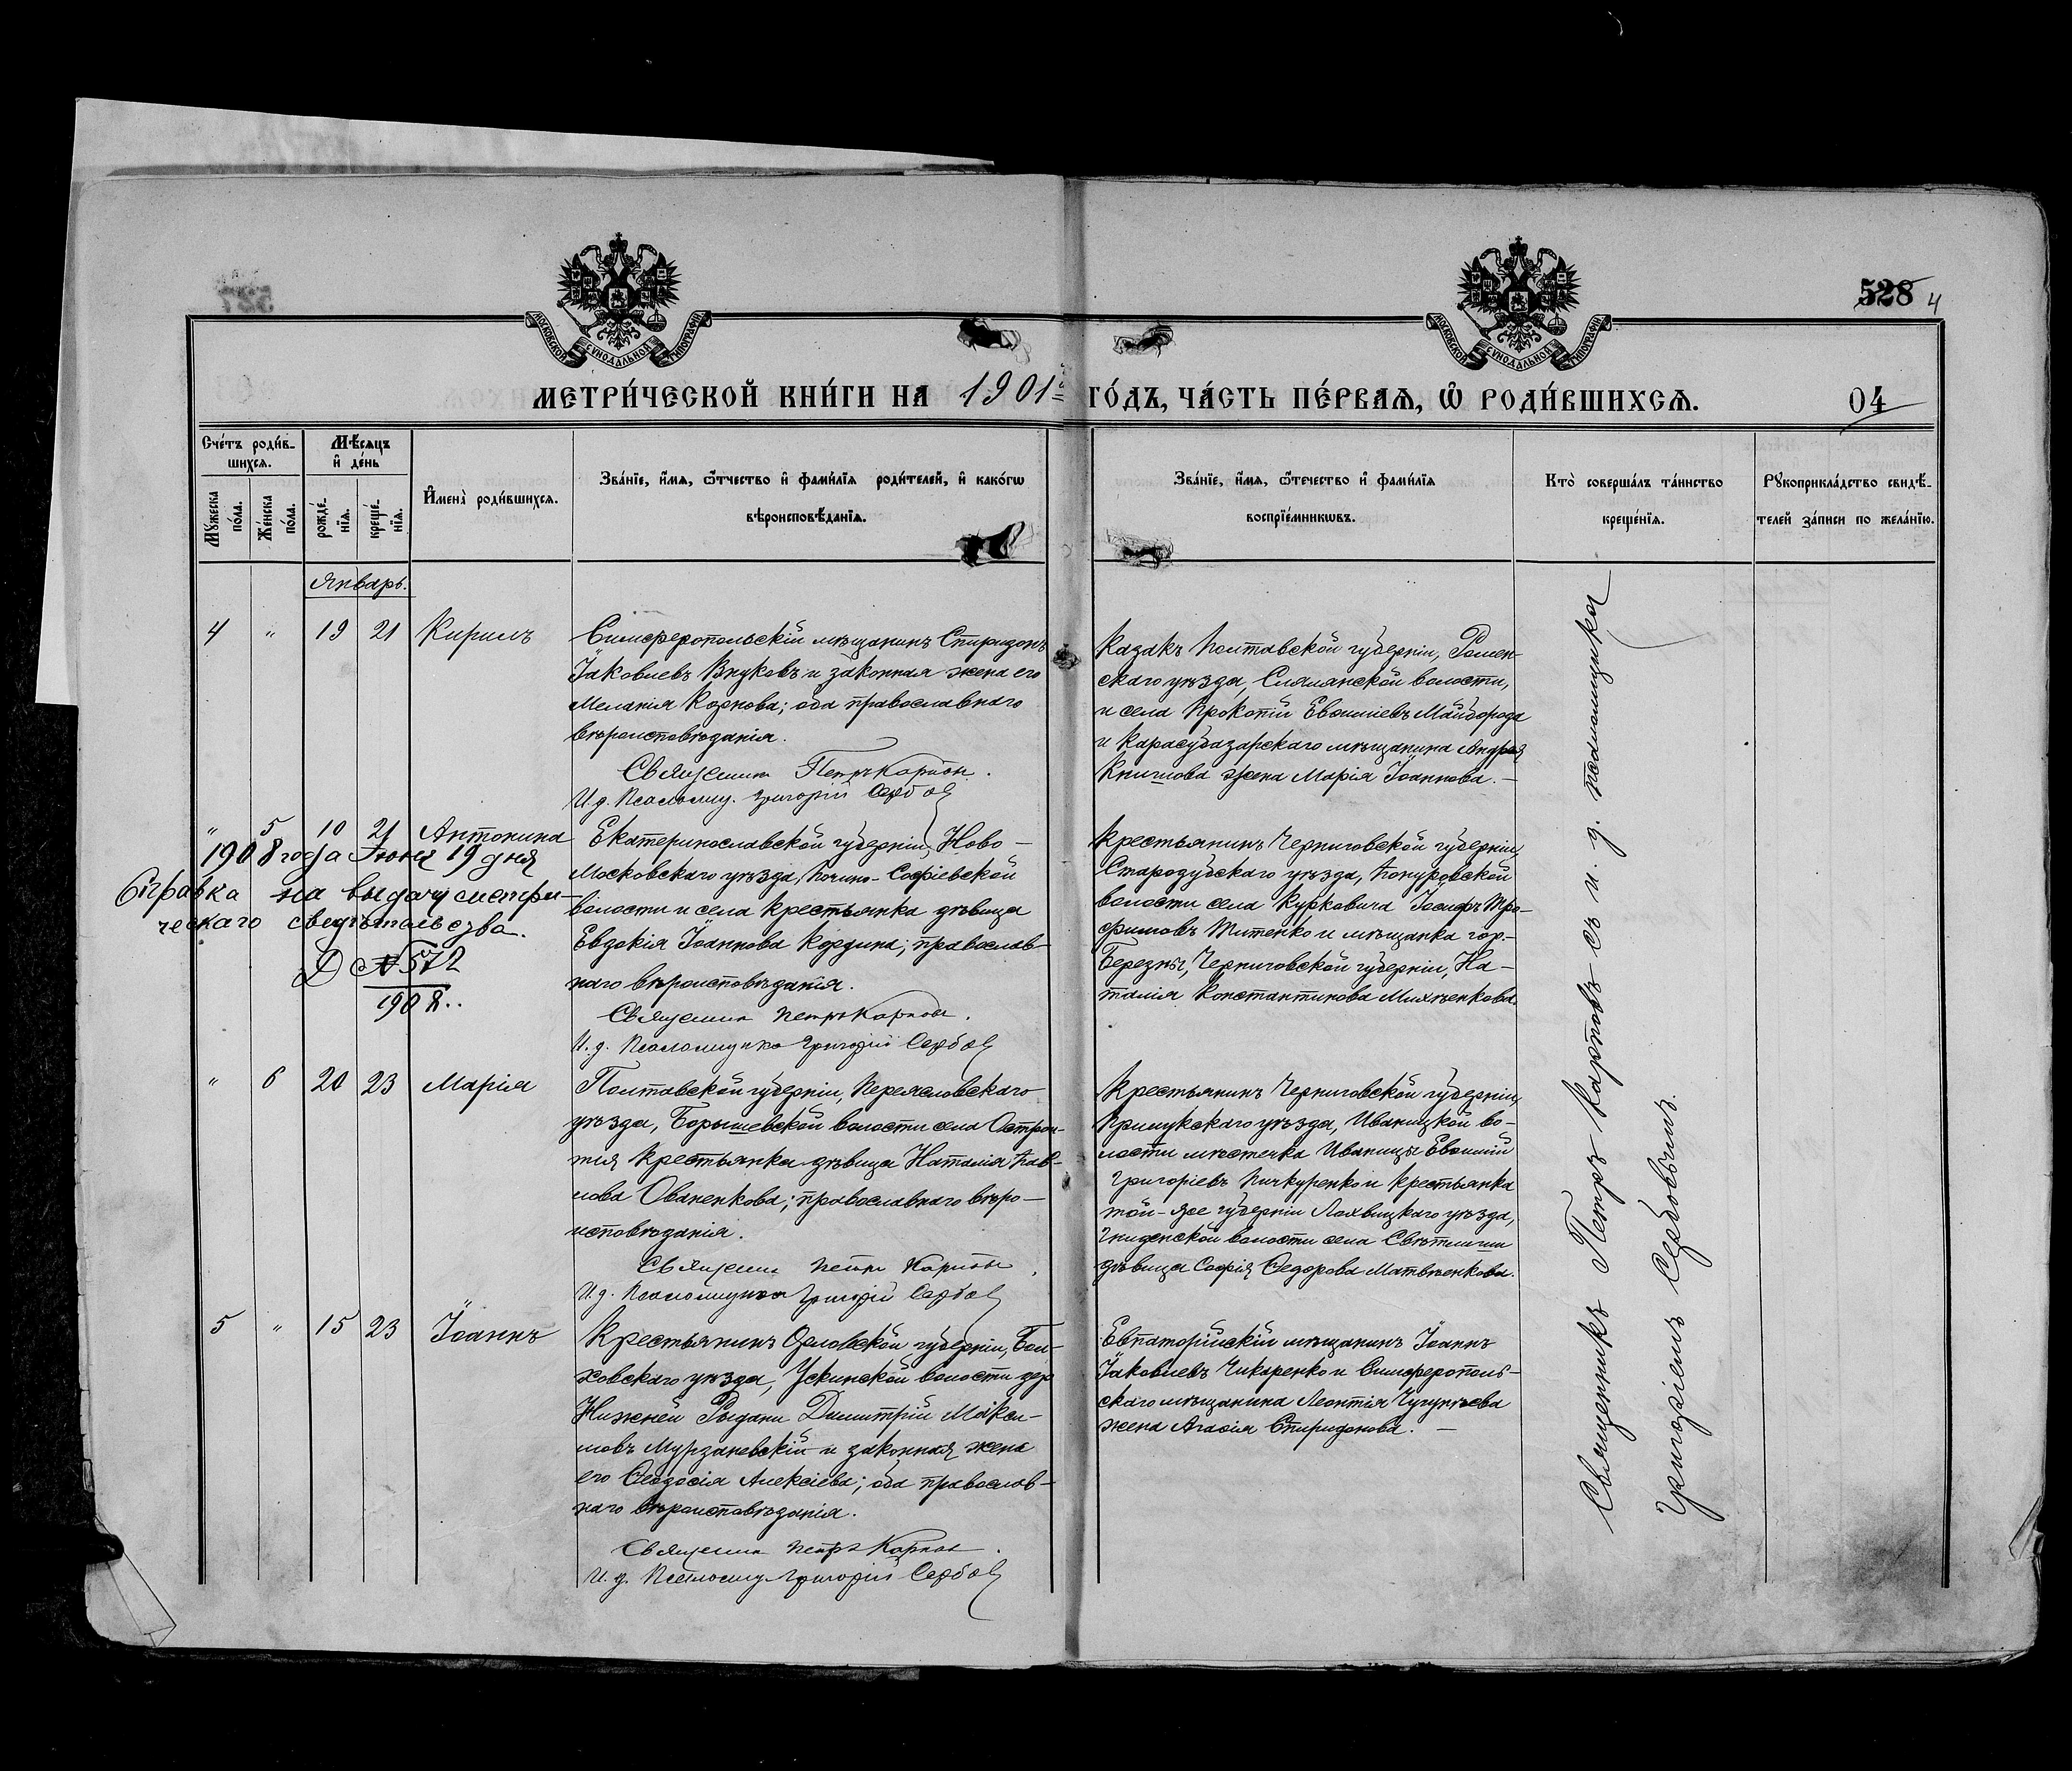 528 4
МОСКОВСКОЙ СѴНОДАЛЬНОЙ ТИПОГРАФІИ
МОСКОВСКОЙ СѴНОДАЛЬНОЙ ТИПОГРАФІИ
МЕТРИ́ЧЕСКОЙ КНИ́ГИ НА 1901й ГО́ДЪ, ЧА́СТЬ ПЕ́РВАѦ, Ѡ҆ РОДИ́ВШИХСѦ.
04
Сче́тъ роди́в-
шихсѧ.
Мꙋ́жеска по́ла.
Же́нска по́ла.
Мѣ́сѧцъ
и҆ де́нь
рожде́-
нїѧ.
креще́-
нїѧ.
И҆мена̀ роди́вшихсѧ.
Зва́нїе, и҆́мѧ, ѻ҆́тчество и҆ фами́лїѧ роди́телей, и҆ како́гѡ
вѣроисповѣ́данїѧ.
Зва́нїе, и҆́мѧ, ѻ҆те́чество и҆ фами́лїѧ
воспрїе́мникѡвъ.
Кто̀ соверша́лъ та́инство
креще́нїѧ.
Рꙋкоприкла́дство свидѣ́-
телей за́писи по жела́нїю.
Январь.
4 " 19 21 Кирилъ
Симферопольскій мѣщанинъ Спиридонъ
Іаковлевъ Внуковъ и законная жена его
Меланія Карпова; оба православнаго
вѣроисповѣданія.
Священникъ Петръ Карповъ.
И. д. Псаломщ. Григорій Сербовъ
Казакъ Полтавской губерніи, Ромен-
скаго уѣзда, волости,
и села Прокопій Евфиміевъ Майборода
и Карасубазарскаго мѣщанина Андрея
жена Марія Іоаннова. —
" 5 10 21 Антонина
1908 года Іюня 19 дня
Справка на выдачу метри-
ческаго свидѣтельства.
№ 572
1908..
Екатеринославской губерніи, Ново-
Московскаго уѣзда, Софіевской
волости и села крестьянка дѣвица
Евдокія Іоаннова Кордина; православ-
наго вѣроисповѣданія.
Священникъ Петръ Карповъ.
И. д. Псаломщика Григорій Сербовъ
Крестьянинъ Черниговской губерніи,
Стародубскаго уѣзда, Понуровской
волости села Курковича Іосифъ Тро-
фимовъ Титенко и мѣщанка гор.
Березны, Черниговской губерніи, На-
талія Константинова Михѣенкова.
" 6 20 23 Марія
Полтавской губерніи, Переяславскаго
уѣзда, Борышевской волости села
крестьянка дѣвица Наталія Пав-
лова Ованенкова; православнаго вѣро-
исповѣданія.
Священникъ Петръ Карповъ.
И. д. Псаломщика Григорій Сербовъ
Крестьянинъ Черниговской губерніи,
Прилукскаго уѣзда, Иваницкой во-
лости мѣстечка Иваницы Евфимій
Григоріевъ Пичкуренко и крестьянка
той-же губерніи Лохвицкаго уѣзда,
Гнидинской волости села
дѣвица Софія Ѳедорова Матвѣенкова.
5 " 15 23 Іоаннъ
Крестьянинъ Орловской губерніи, Бол-
ховскаго уѣзда, Ускинской волости дер.
Нижней Рыдани Димитрій Макси-
мовъ Мурзаневскій и законная жена
его Ѳеодосія Алексіева; оба православ-
наго вѣроисповѣданія.
Священникъ Петръ Карповъ.
И. д. Псаломщ. Григорій Сербовъ
Евпаторійскій мѣщанинъ Іоаннъ
Іаковлевъ Чикаренко и Симферополь-
скаго мѣщанина Леонтія Чугунѣева
жена Агафія Спиридонова. —
Священникъ Петръ Карповъ съ и. д. псаломщика
Григоріемъ Сербовымъ.